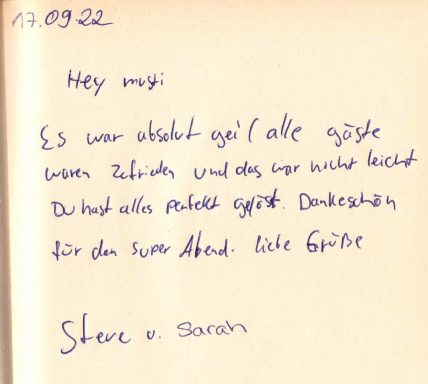 17.09.22
Hey musti
Es war absolut geil alle gäste
waren zufrieden und das war nicht leicht
Du hast alles perfekt gelöst. Dankeschön
für den super Abend. liebe Grüße
Steve u. Sarah